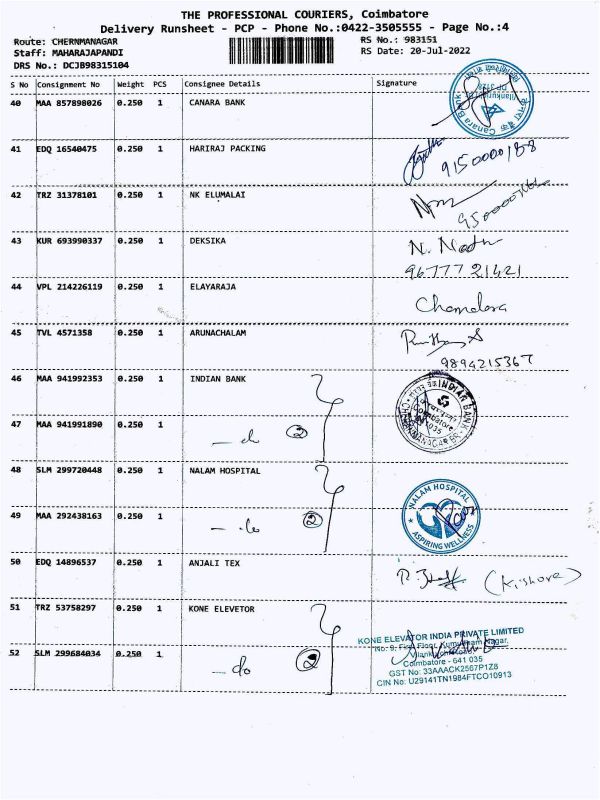 THE PROFESSIONAL COURIERS, Coimbatore
Delivery Runsheet - PCP - Phone No.:0422-3505555 - Page No.:4
Route: CHERNMANAGAR RS No.: 983151
Staff: MAHARAJAPANDI RS Date: 20-Jul-2022
DRS No.: DCJB98315104
S No Consignment No Weight PCS Consignee Details Signature
40 MAA 857898026 0.250 1 CANARA BANK
Canara Bank
41 EDQ 16540475 0.250 1 HARIRAJ PACKING
9150000188
42 TRZ 31378101 0.250 1 NK ELUMALAI
43 KUR 693990337 0.250 1 DEKSIKA
9677721421
44 VPL 214226119 0.250 1 ELAYARAJA
45 TVL 4571358 0.250 1 ARUNACHALAM
9894215367
46 MAA 941992353 0.250 1 INDIAN BANK
INDIAN BANK
Coimbatore
47 MAA 941991890 0.250 1 - do 2
48 SLM 299720448 0.250 1 NALAM HOSPITAL
NALAM HOSPITAL
ASPIRING WELLNESS
49 MAA 292438163 0.250 1 - do 2
50 EDQ 14896537 0.250 1 ANJALI TEX (Kishore)
51 TRZ 53758297 0.250 1 KONE ELEVETOR
KONE ELEVATOR INDIA PRIVATE LIMITED
No: 9, First Floor, Nagar,
52 SLM 299684034 0.250 1 - do 2
Coimbatore - 641 035
GST No: 33AAACK2567P1Z8
CIN No: U29141TN1984FTCO10913